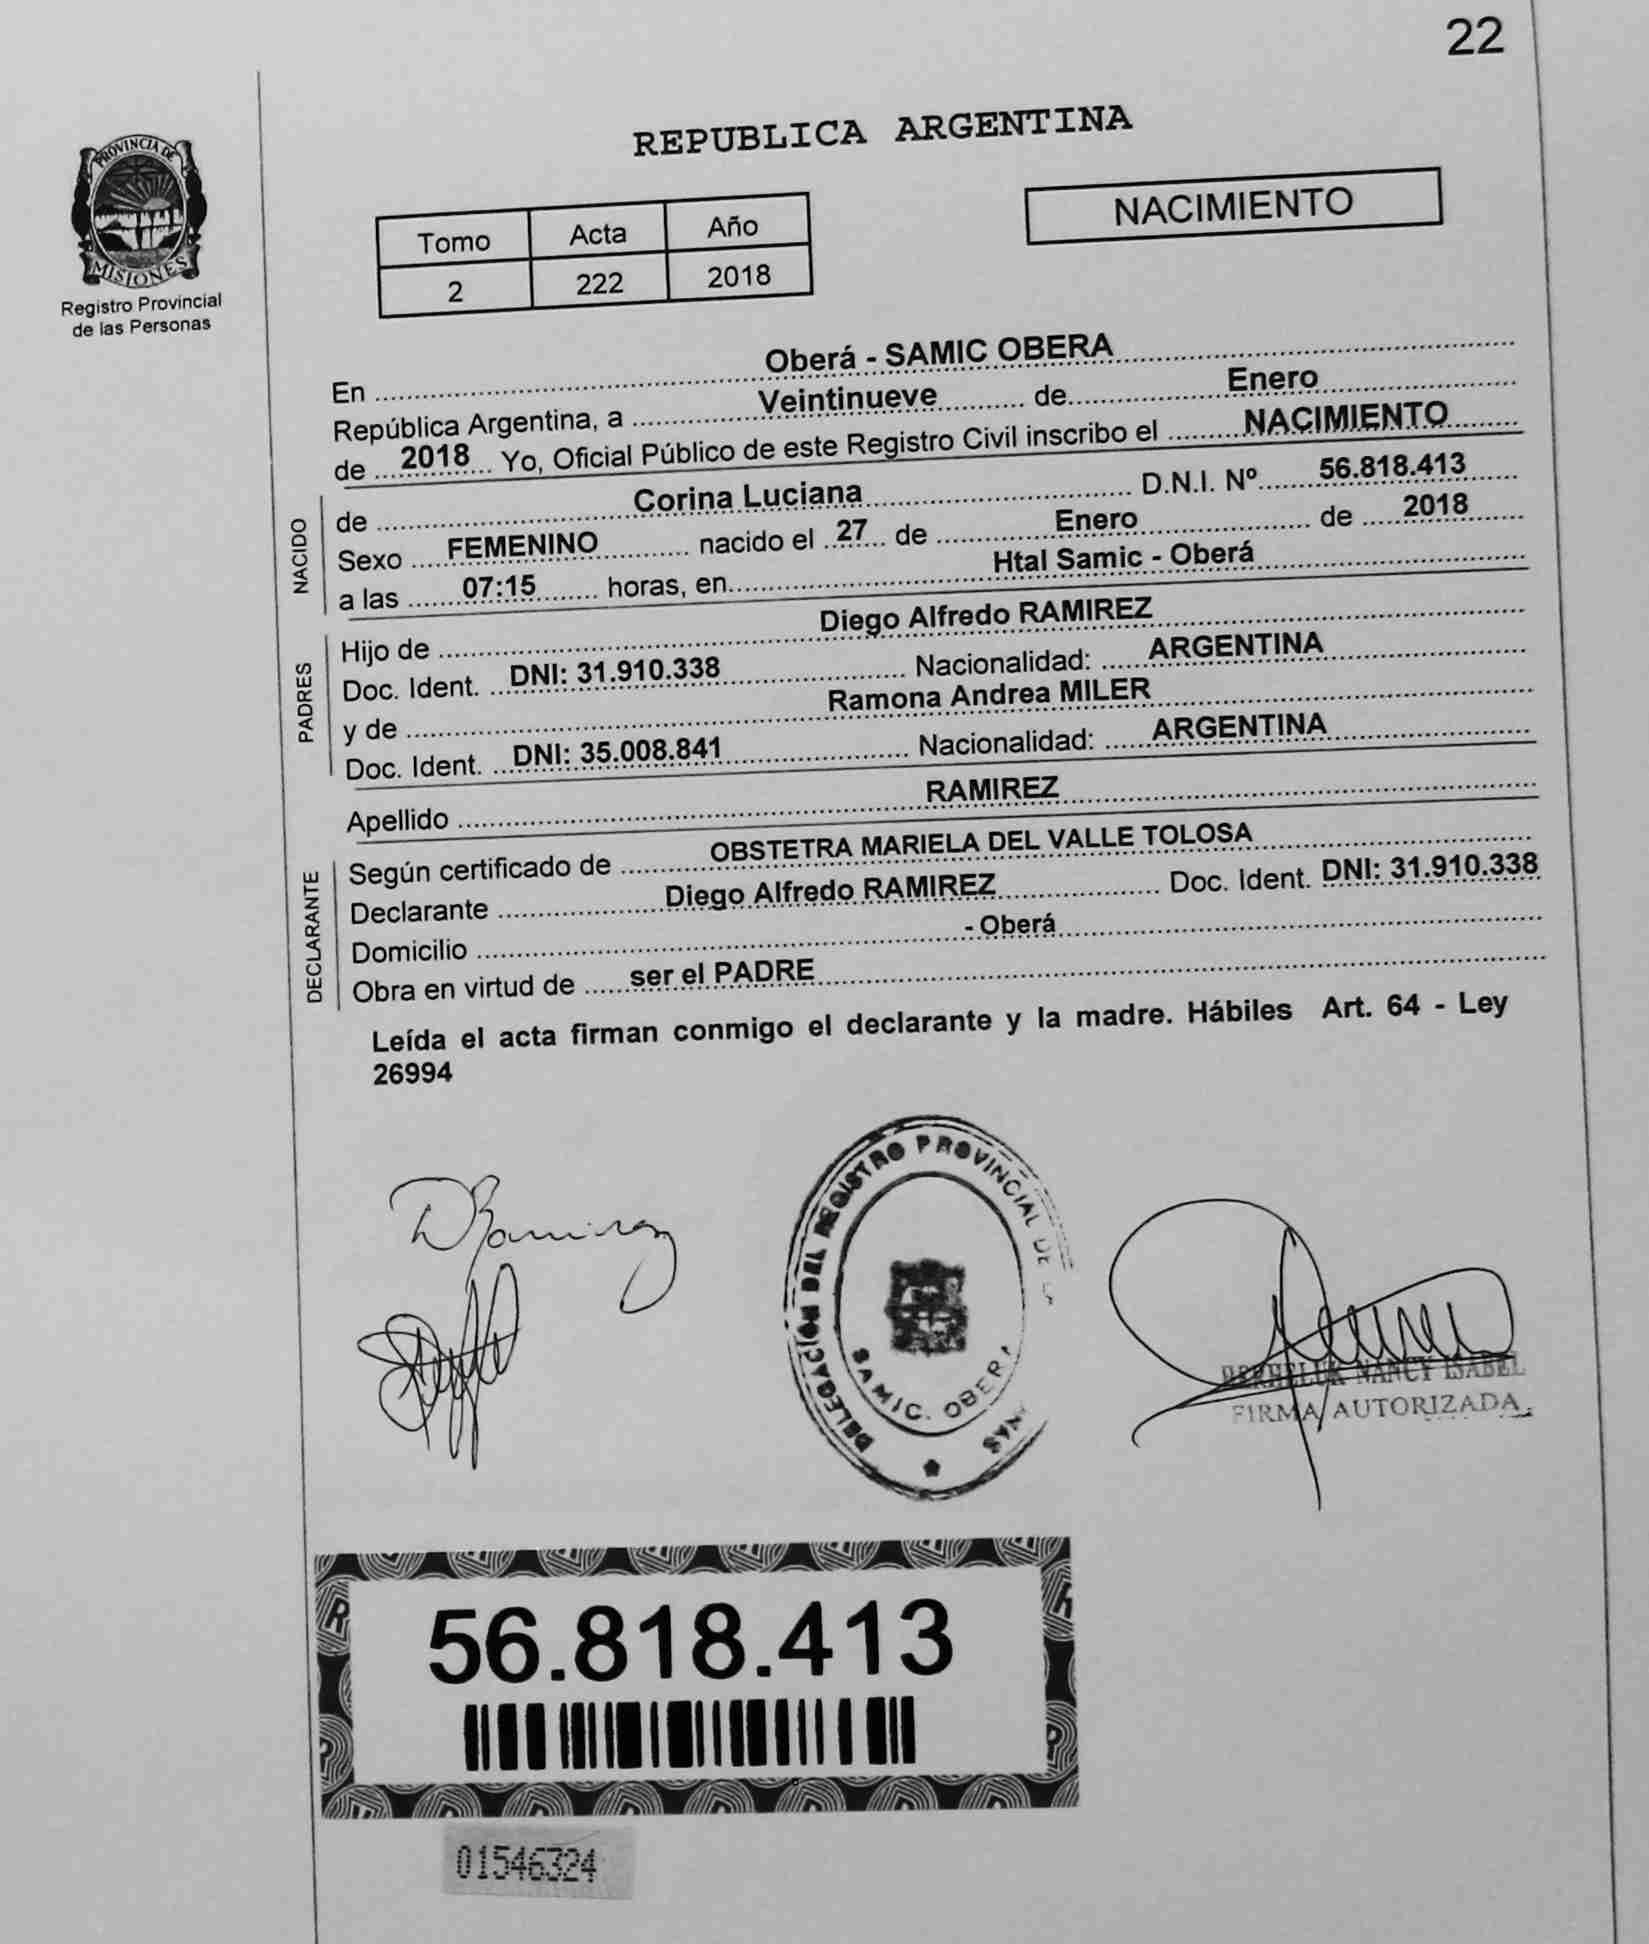 22
PROVINCIA DE
MISIONES
Registro Provincial
de las Personas
REPUBLICA ARGENTINA
NACIMIENTO
Tomo Acta Año
2 222 2018
En ........ Oberá - SAMIC OBERA ........
República Argentina, a ........ Veintinueve ........ de ........ Enero ........
de ........ 2018 ........ Yo, Oficial Público de este Registro Civil inscribo el ........ NACIMIENTO ........
NACIDO
de ........ Corina Luciana ........ D.N.I. Nº ........ 56.818.413 ........
Sexo ........ FEMENINO ........ nacido el ... 27 ... de ........ Enero ........ de ........ 2018 ........
a las ........ 07:15 ........ horas, en ........ Htal Samic - Oberá ........
PADRES
Hijo de ........ Diego Alfredo RAMIREZ ........
Doc. Ident. ... DNI: 31.910.338 ........ Nacionalidad: ........ ARGENTINA ........
y de ........ Ramona Andrea MILER ........
Doc. Ident. ... DNI: 35.008.841 ........ Nacionalidad: ........ ARGENTINA ........
Apellido ........ RAMIREZ ........
DECLARANTE
Según certificado de ........ OBSTETRA MARIELA DEL VALLE TOLOSA ........
Declarante ........ Diego Alfredo RAMIREZ ........ Doc. Ident. DNI: 31.910.338
Domicilio ........ - Oberá ........
Obra en virtud de ...... ser el PADRE ........
Leída el acta firman conmigo el declarante y la madre. Hábiles Art. 64 - Ley
26994
DRamirez
DELEGACION DEL REGISTRO PROVINCIAL DE
SAMIC. OBER
NANCY ISABEL
FIRMA AUTORIZADA
56.818.413
01546324